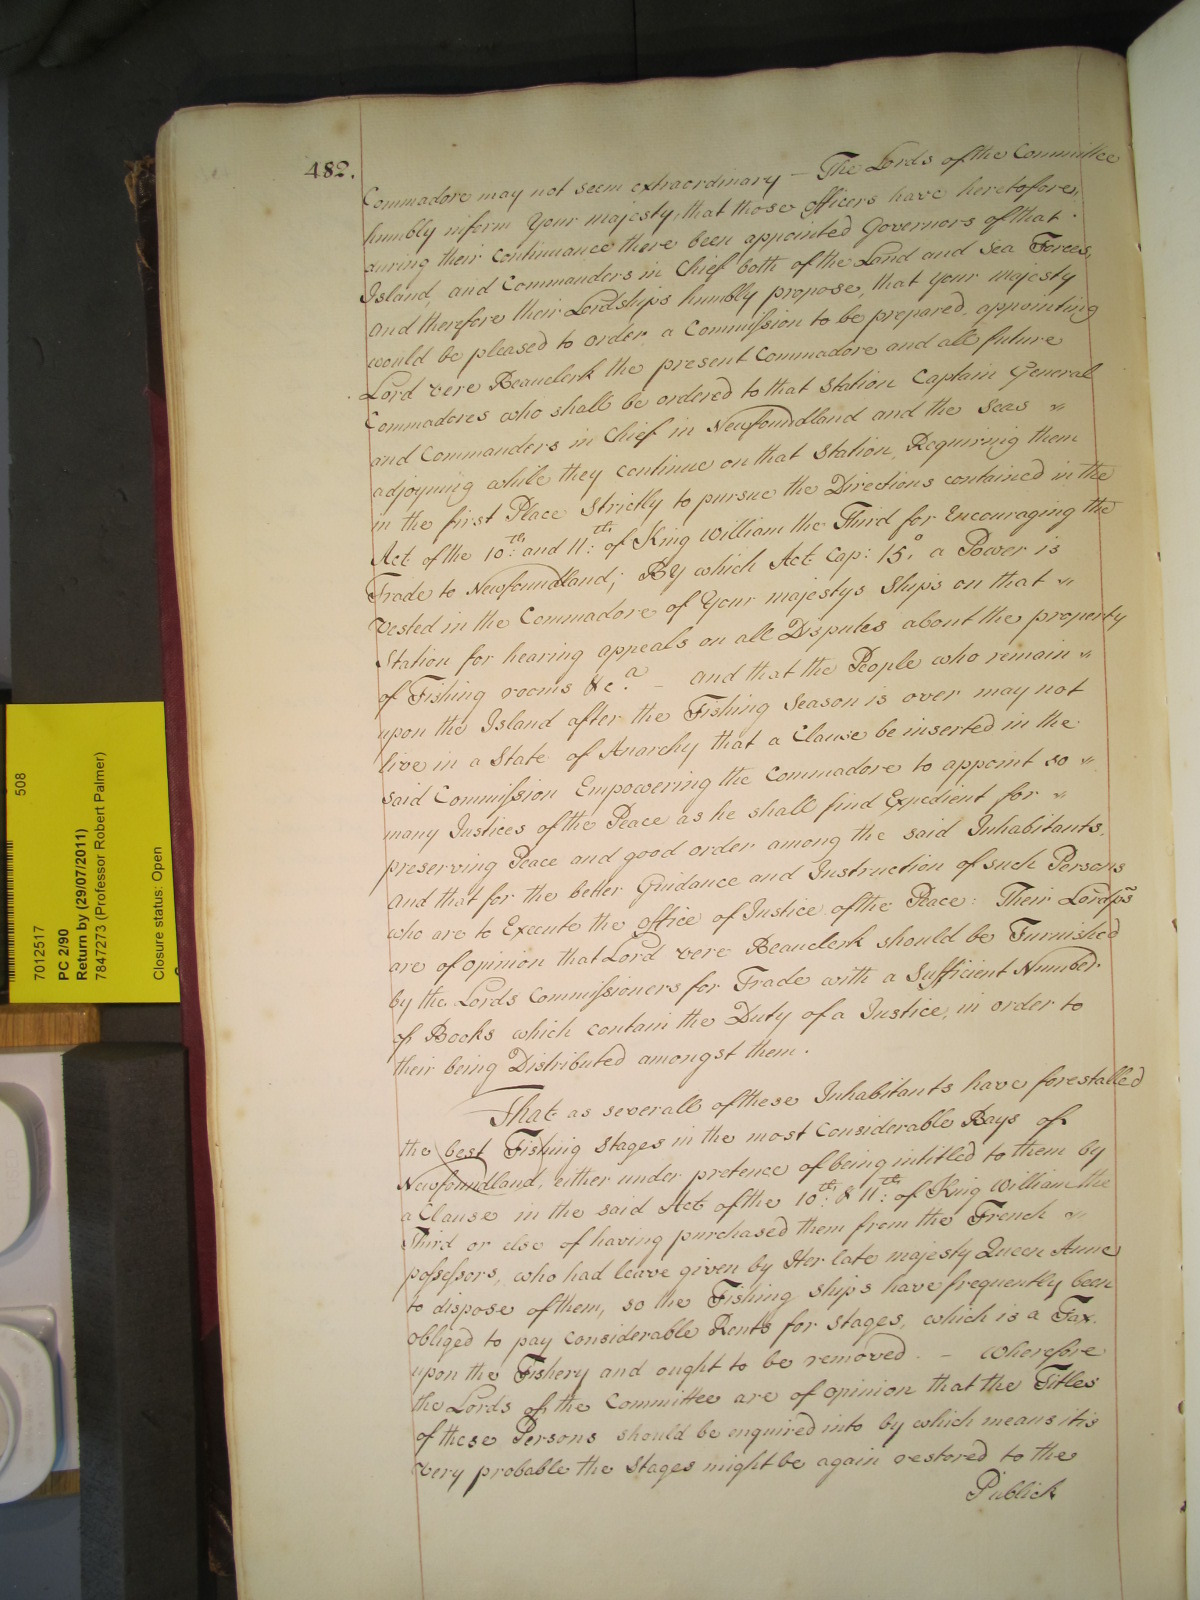 482.
Commadore may not seem extraordinary – The Lords of the Committee
humbly inform Your majesty, that those officers have heretofore,
during their Continuance there been appointed Governors of that
Island, and Commanders in Chief both of the Land and Sea Forces,
And therefore their Lordships humbly propose, that Your Majesty
would be pleased to order a Commission to be prepared appointing
Lord Vere Beauclerk the present Commadore and all future
Commadores who shall be ordered to that Station Captain General
and Commanders in Chief in Newfoundland and the Seas "
adjoyning while they continue on that Station, Requiring them
in the first Place Strictly to pursue the Directions contained in the
Act of the 10th: and 11th: of King William the Third for Encouraging the
Trade to Newfoundland; By which Act Cap: 15.° a Power is
Vested in the Commadore of Your majestys Ships on that "
Station for hearing appeals on all Disputes about the property
of Fishing rooms &c.a – And that the People who remain "
upon the Island after the Fishing Season is over may not
live in a State of Anarchy that a Clause be inserted in the
said Commission Empowering the Commadore to appoint so "
many Justices of the Peace as he shall find Expedient for "
preserving Peace and good order among the said Inhabitants,
And that for the better Guidance and Instruction of such Persons
who are to Execute the office of Justice of the Peace: Their Lordps
are of opinion that Lord Vere Beauclerk should be Furnished
by the Lords Commissioners for Trade with a Sufficient Number
of Books which contain the Duty of a Justice, in order to
their being Distributed amongst them.
That as severall of these Inhabitants have forestalled
the best Fishing Stages in the most Considerable Bays of
Newfoundland, either under pretence of being intitled to them by
a Clause in the said Act of the 10th: & 11th: of King William the
Third or else of having purchased them from the French "
possessors, who had leave given by Her late majesty Queen Anne
to dispose of them, so the Fishing Ships have frequently been
obliged to pay Considerable Rents for Stages, which is a Tax
upon the Fishery and ought to be removed. – Wherefore
the Lords of the Committee are of opinion that the Titles
of these Persons should be enquired into by which means it is
very probable the Stages might be again restored to the
Publick
508
7012517
PC 2/90
Return by (29/07/2011)
7847273 (Professor Robert Palmer)
Closure status: Open